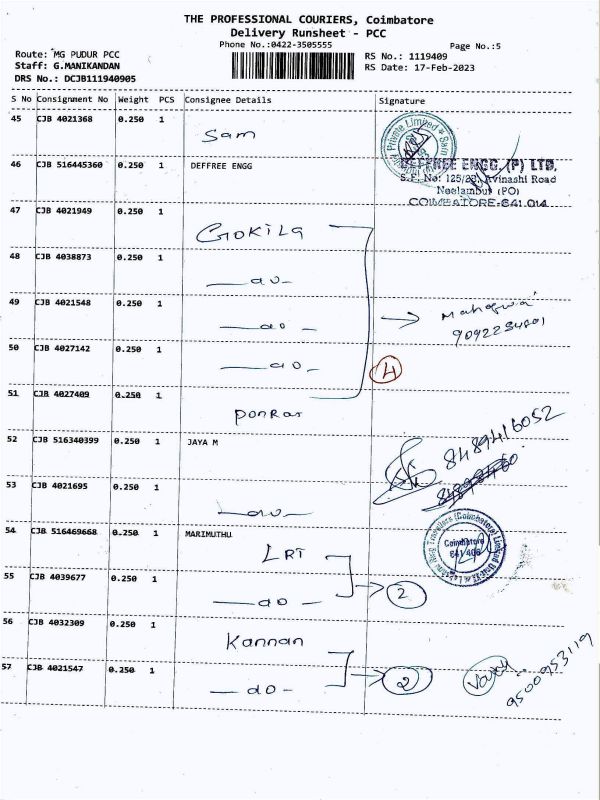 THE PROFESSIONAL COURIERS, Coimbatore
Delivery Runsheet - PCC
Phone No.:0422-3505555
Page No.:5
Route: MG PUDUR PCC
RS No.: 1119409
Staff: G.MANIKANDAN
RS Date: 17-Feb-2023
DRS No.: DCJB111940905
S No Consignment No Weight PCS Consignee Details Signature
45 CJB 4021368 0.250 1
Sam
46 CJB 516445360 0.250 1 DEFFREE ENGG
DEFFREE ENGG. (P) LTD.
S.F. No: 125/ Avinashi Road
Neelambur (PO)
COIMBATORE-641 014
47 CJB 4021949 0.250 1
GOKILA
48 CJB 4038873 0.250 1
— do —
49 CJB 4021548 0.250 1
— do —
9092234801
50 CJB 4027142 0.250 1
— do —
4
51 CJB 4027409 0.250 1
Ponraj
52 CJB 516340399 0.250 1 JAYA M
8489416052
53 CJB 4021695 0.250 1
— do —
54 CJB 516469668 0.250 1 MARIMUTHU
LRT
Coimbatore
641 406
55 CJB 4039677 0.250 1
— do —
2
56 CJB 4032309 0.250 1
Kannan
57 CJB 4021547 0.250 1
— do —
2
9500953119